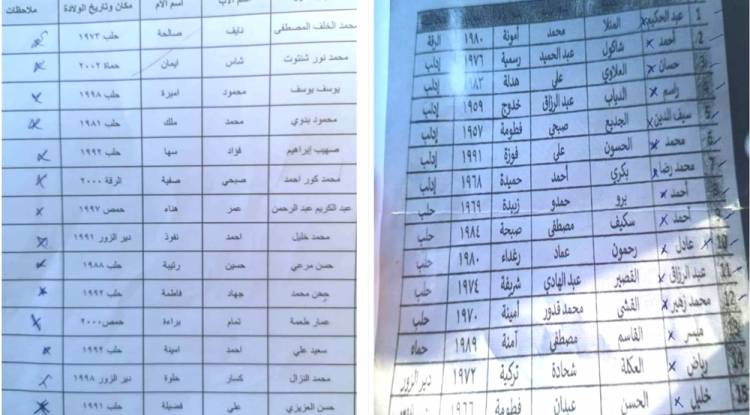 مكان وتاريخ الولادة ملاحظات
محمد الخلف المصطفى نايف صالحة حلب ١٩٧٣
محمد نور شنتوت شاس ايمان حماة ٢٠٠٢
يوسف يوسف محمود اميرة حلب ١٩٩٨
محمود بدوي محمد ملك حلب ١٩٨١
صهيب إبراهيم فؤاد سها حلب ١٩٩٢
محمد كور احمد صبحي صفية الرقة ٢٠٠٠
عبد الكريم عبد الرحمن عمر هناء حمص ١٩٩٧
محمد خليل احمد نفوذ دير الزور ١٩٩١
حسن مرعي حسين رتيبة حلب ١٩٨٨
محمد جهاد فاطمة حلب ١٩٩٢
عمار طعمة تمام براءة حمص ٢٠٠٠
سعيد علي احمد امينة حلب ١٩٩٢
محمد النزال كسار حلوة دير الزور ١٩٩٨
حسن العزيزي علي فضيلة حلب ١٩٩١
1 عبد الحكيم المنلا محمد أمونة ١٩٨٠ الرقة
2 أحمد شاكول عبد الحميد رسمية ١٩٧٦ إدلب
حسان الملاوي علي هدلة إدلب
راسم الدياب عبد الرزاق خدوج ١٩٥٩ إدلب
سيف الدين الجديع صبحي فطومة ١٩٥٧ إدلب
6 محمد الحسون علي فوزة ١٩٩١ إدلب
7 محمد رضا بكري أحمد حميدة ١٩٦٨ إدلب
أحمد برو حمدو زبيدة ١٩٦٩ حلب
9 أحمد سكيف مصطفى صبحة ١٩٨٤ حلب
10 عادل رحمون عماد رغداء ١٩٨٠ حلب
11 عبد الرزاق القصير عبد الهادي شريفة ١٩٧٤ حلب
12 محمد زهير القشي محمد قدور أمينة ١٩٧٠ حلب
ميسر القاسم مصطفى آمنة ١٩٨٩ حماه
رياض العكلة شحادة تركية ١٩٧٢ دير الزور
خليل الحسن عبدان فطومة